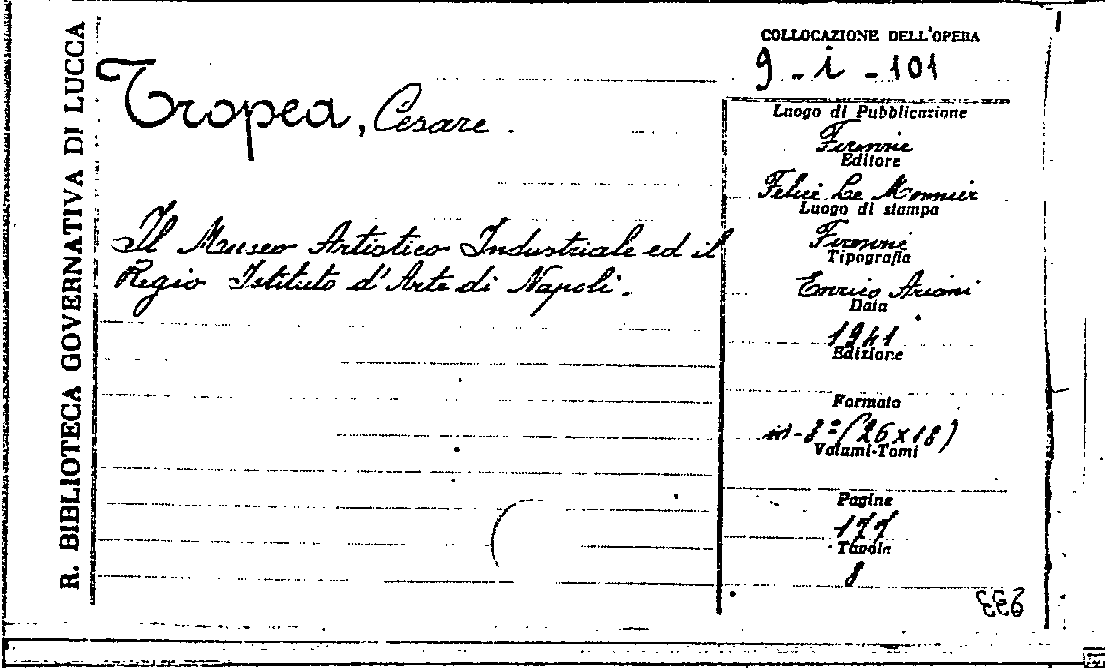 R. BIBLIOTECA GOVERNATIVA DI LUCCA
COLLOCAZIONE DELL'OPERA
9 - i - 101
Tropea, Cesare.
Il Museo Artistico Industriale ed il
Regio Istituto d'Arte di Napoli.
Luogo di Pubblicazione
Firenze
Editore
Felice Le Monnier
Luogo di stampa
Firenze
Tipografia
Enrico Ariani
Data
1941
Edizione
Formato
in-8º (26x18)
Volumi-Tomi
Pagine
177
Tavole
8
933